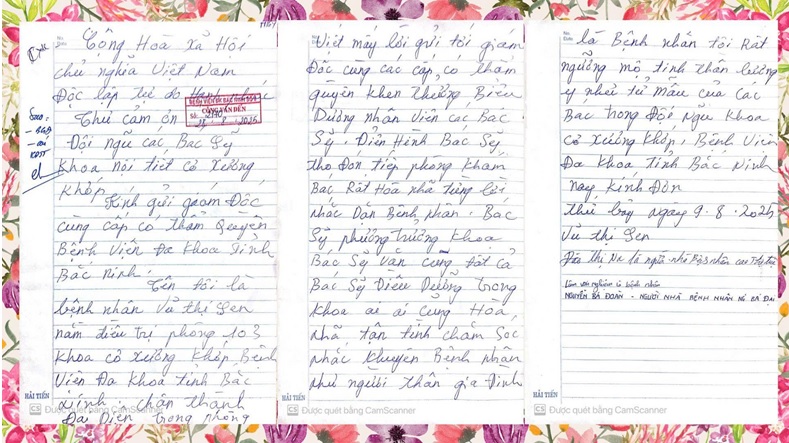 Cộng Hoà xã Hội
chủ nghĩa Việt Nam
Độc lập tự do
BỆNH VIỆN ĐK BẮC NINH SỐ 1
CÔNG VĂN ĐẾN
Số: 2140
Thư cảm ơn
Đội ngũ các Bác Sỹ
Khoa nội tiết cơ xương
Khớp
Kính gửi giám Đốc
cùng cấp có thẩm quyền
Bệnh Viện Đa Khoa Tỉnh
Bắc Ninh
Tên tôi là
bệnh nhân Vũ thị Sen
nằm điều trị phòng 103
Khoa cơ xương khớp Bệnh
Viện Đa Khoa tỉnh Bắc
Ninh. chân thành
Đại Diện trong phòng
HẢI TIẾN
CS Được quét bằng CamScanner
Viết mấy lời gửi tới giám
Đốc cùng các cấp có thẩm
quyền khen thưởng Biểu
Dương nhân Viên các Bác
Sỹ. Điển Hình Bác Sỹ
thọ Đón tiếp phòng khám
Bác Rất Hoà nhã từng lời
nhắc Dặn Bệnh nhân. Bác
Sỹ phương trưởng khoa
Bác Sỹ Vân cùng tất cả
Bác Sỹ Điều Dưỡng trong
Khoa ai ai cũng Hoà
nhã, tận tình chăm Sóc
nhắc khuyên Bệnh nhân
như người thân gia Đình
HẢI TIẾN
CS Được quét bằng CamScanner
là Bệnh nhân tôi Rất
ngưỡng mộ tinh thần lương
y như từ mẫu của các
Bác trong Đội Ngũ Khoa
cơ xương khớp, Bệnh Viện
Đa Khoa tỉnh Bắc Ninh
nay kính Đơn
thứ bảy ngày 9.8.2025
Vũ thị Sen
là người nhà Bệnh nhân
NGUYỄN BÁ ĐOÀN - NGƯỜI NHÀ BỆNH NHÂN BÁ ĐẠI
HẢI TIẾN
CS Được quét bằng CamScanner